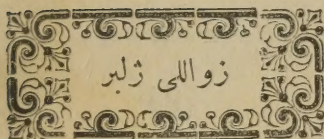 زواللی ژلبر